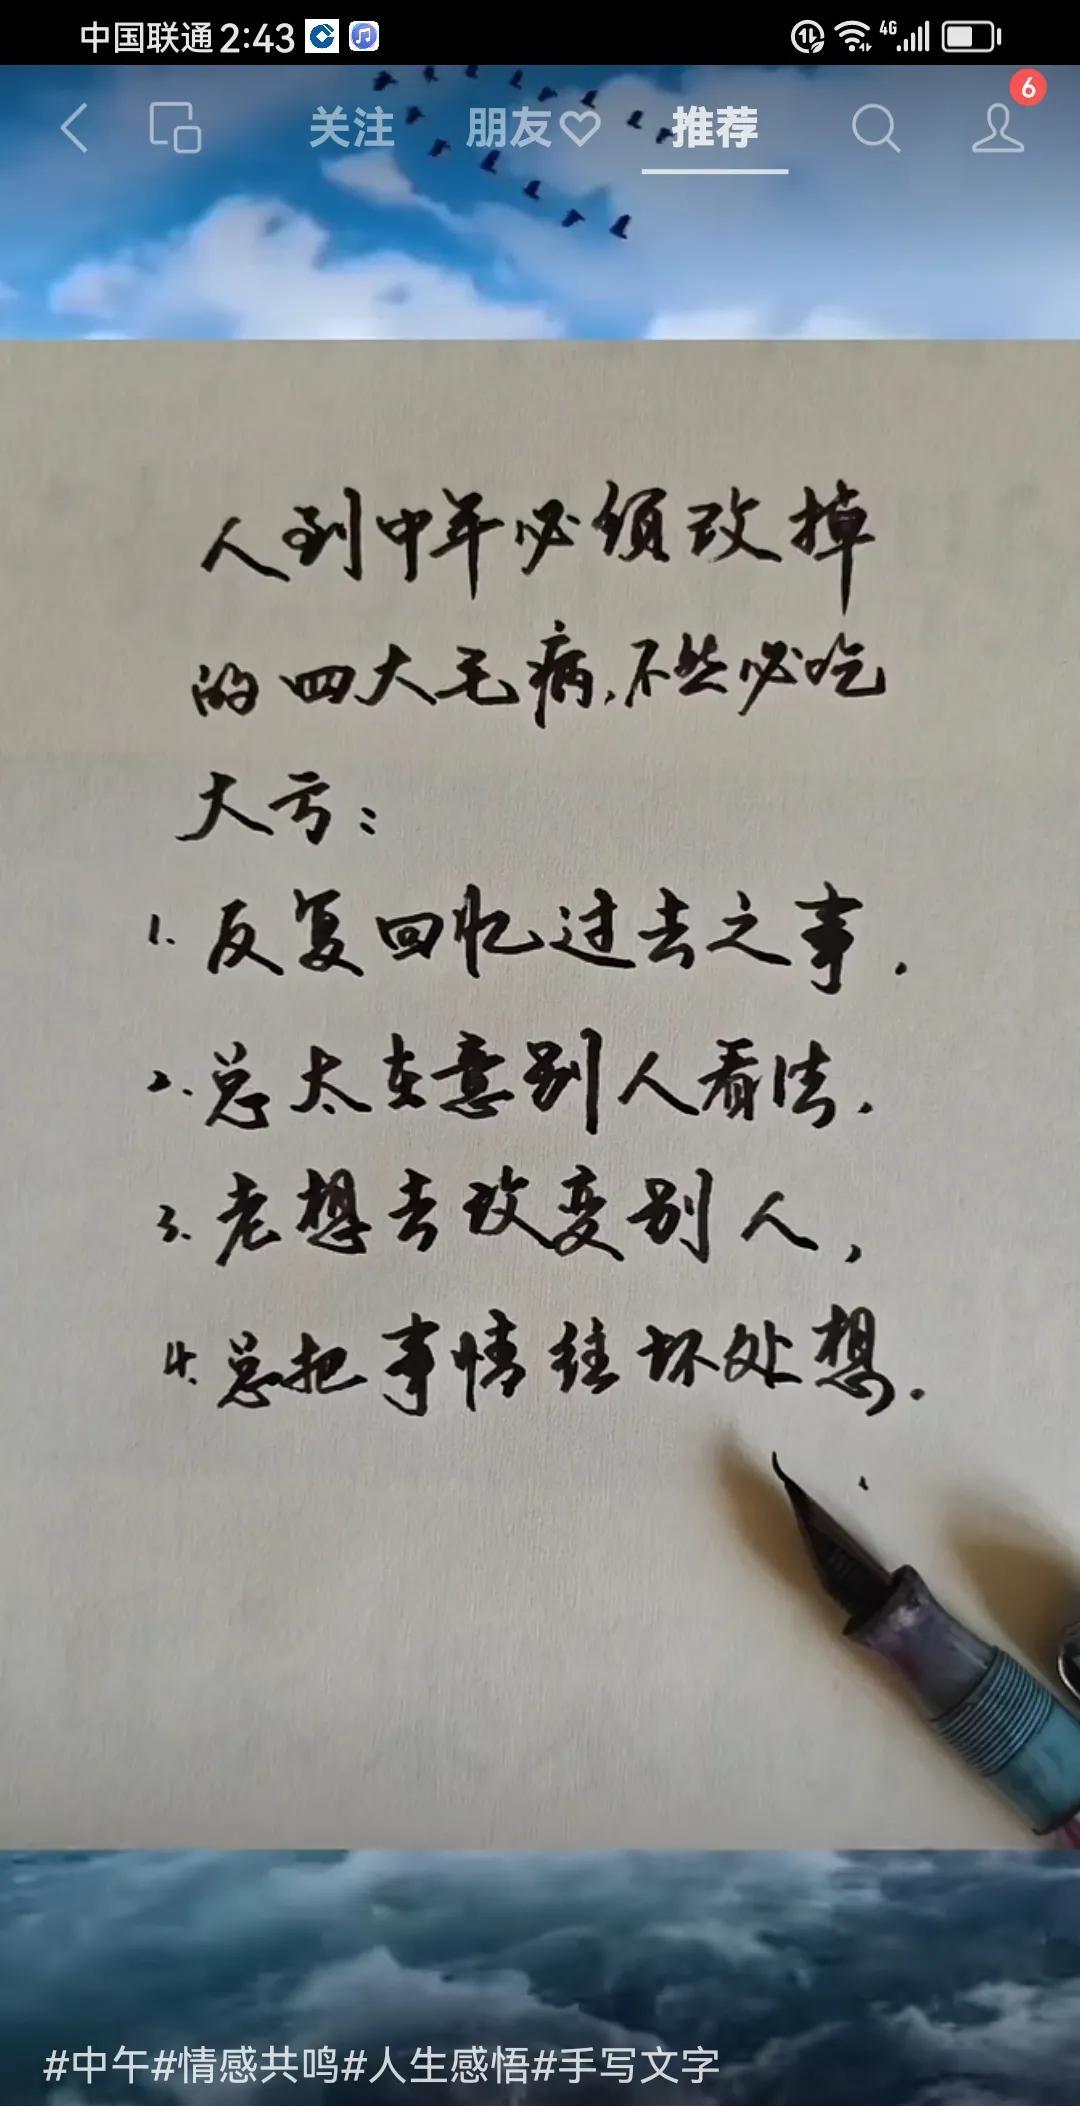 中国联通 2:43
4G
6
关注 朋友 推荐
人到中年必须改掉
的四大毛病,不然必吃
大亏:
1.反复回忆过去之事.
2.总太在意别人看法.
3.老想去改变别人,
4.总把事情往坏处想.
#中午#情感共鸣#人生感悟#手写文字